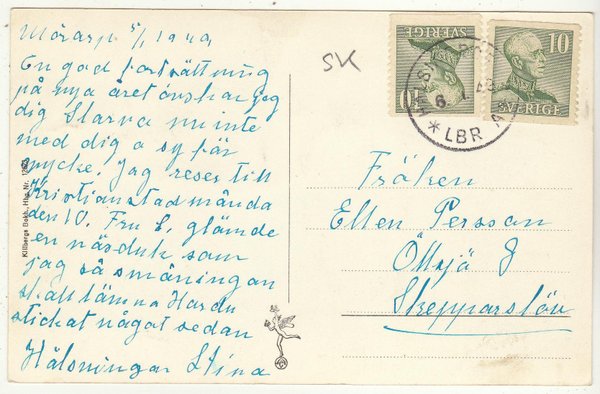 Mörarp 5/1 1949
En god fortsättning
på nya året önskar jag
dig Slarva nu inte
med dig a sy för
mycke. Jag reser till
Kristianstad månda
den 10. Fru E. glämde
en näsduk som
jag så småningan
skall lämna Hardu
stickat något sedan
Hälsningar Stina
SK
SVERIGE
10
10
SVERIGE
LBR
Fröken
Ellen Persson
Skepparslöv